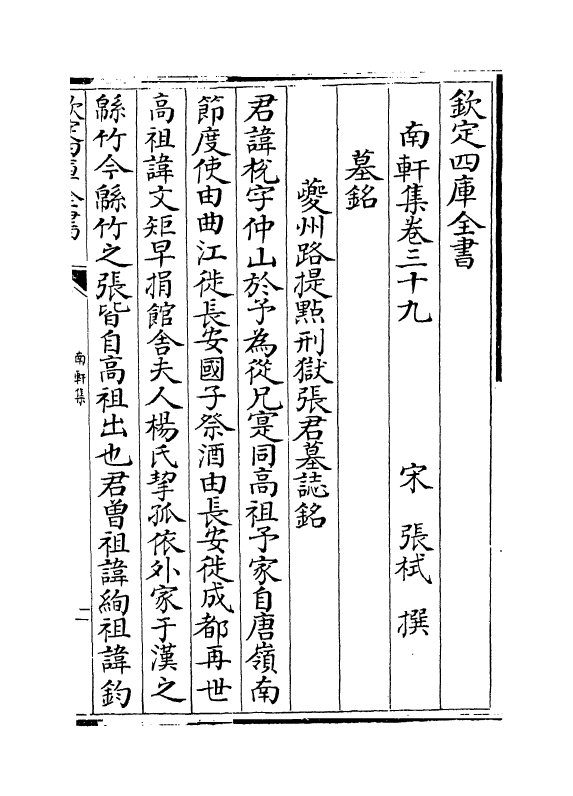 欽定四庫全書
南軒集卷三十九
宋 張栻 撰
墓銘
夔州路提點刑獄張君墓誌銘
君諱栻字仲山於予為從兄寔同高祖予家自唐嶺南
節度使由曲江徙長安國子祭酒由長安徙成都再世
高祖諱文矩早捐館舍夫人楊氏挈孤依外家于漢之
緜竹今緜竹之張皆自高祖出也君曽祖諱絢祖諱鈞
欽定四庫全書
南軒集